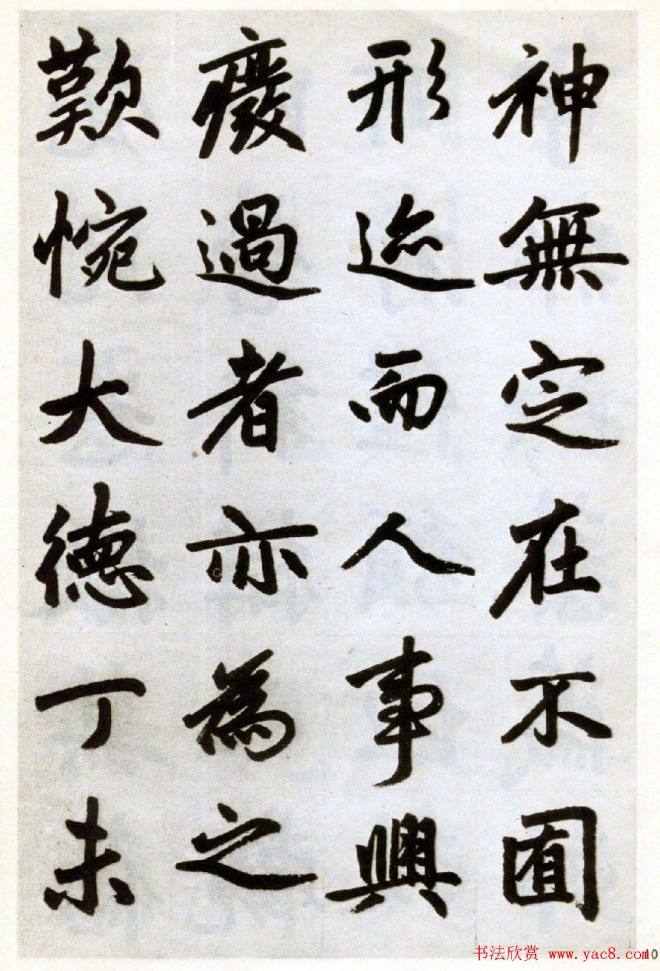 神無定在不囿
形迹而人事興
廢過者亦為之
歎惋大德丁未
书法欣赏 www.yac8.com
10